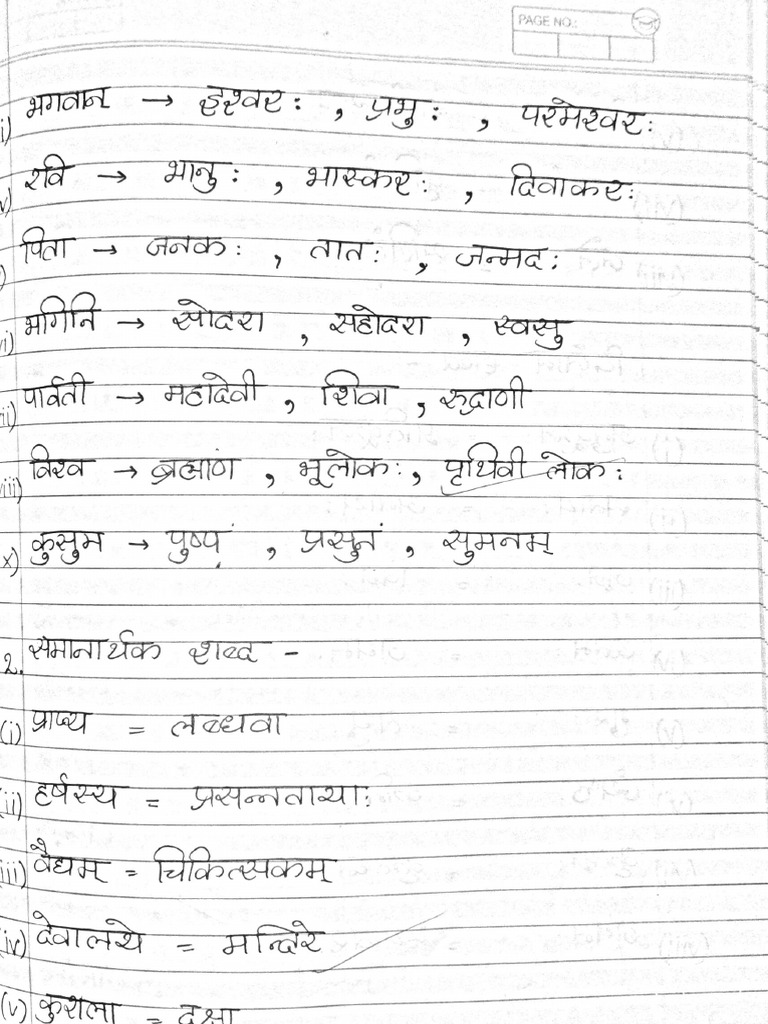 PAGE NO.:
i) भगवान् → इश्वरः , प्रभुः , परमेश्वरः
v) रवि → भानुः , भास्करः , दिवाकरः
) पिता → जनकः , तातः , जन्मदः
vi) भगिनि → सोदरा , सहोदरा , स्वसु
ii) पार्वती → महादेवी , शिवा , रुद्राणी
viii) विश्व → ब्रह्मांण , भूलोकः , पृथिवी लोकः
x) कुसुम → पुष्पं , प्रसुनं , सुमनम्
2. समानार्थक शब्द -
(i) प्राप्य = लब्धवा
(ii) हर्षस्य = प्रसन्नतायाः
(iii) वैद्यम् = चिकित्सकम्
(iv) देवालये = मन्दिरे
(v) कुशला = दक्षा